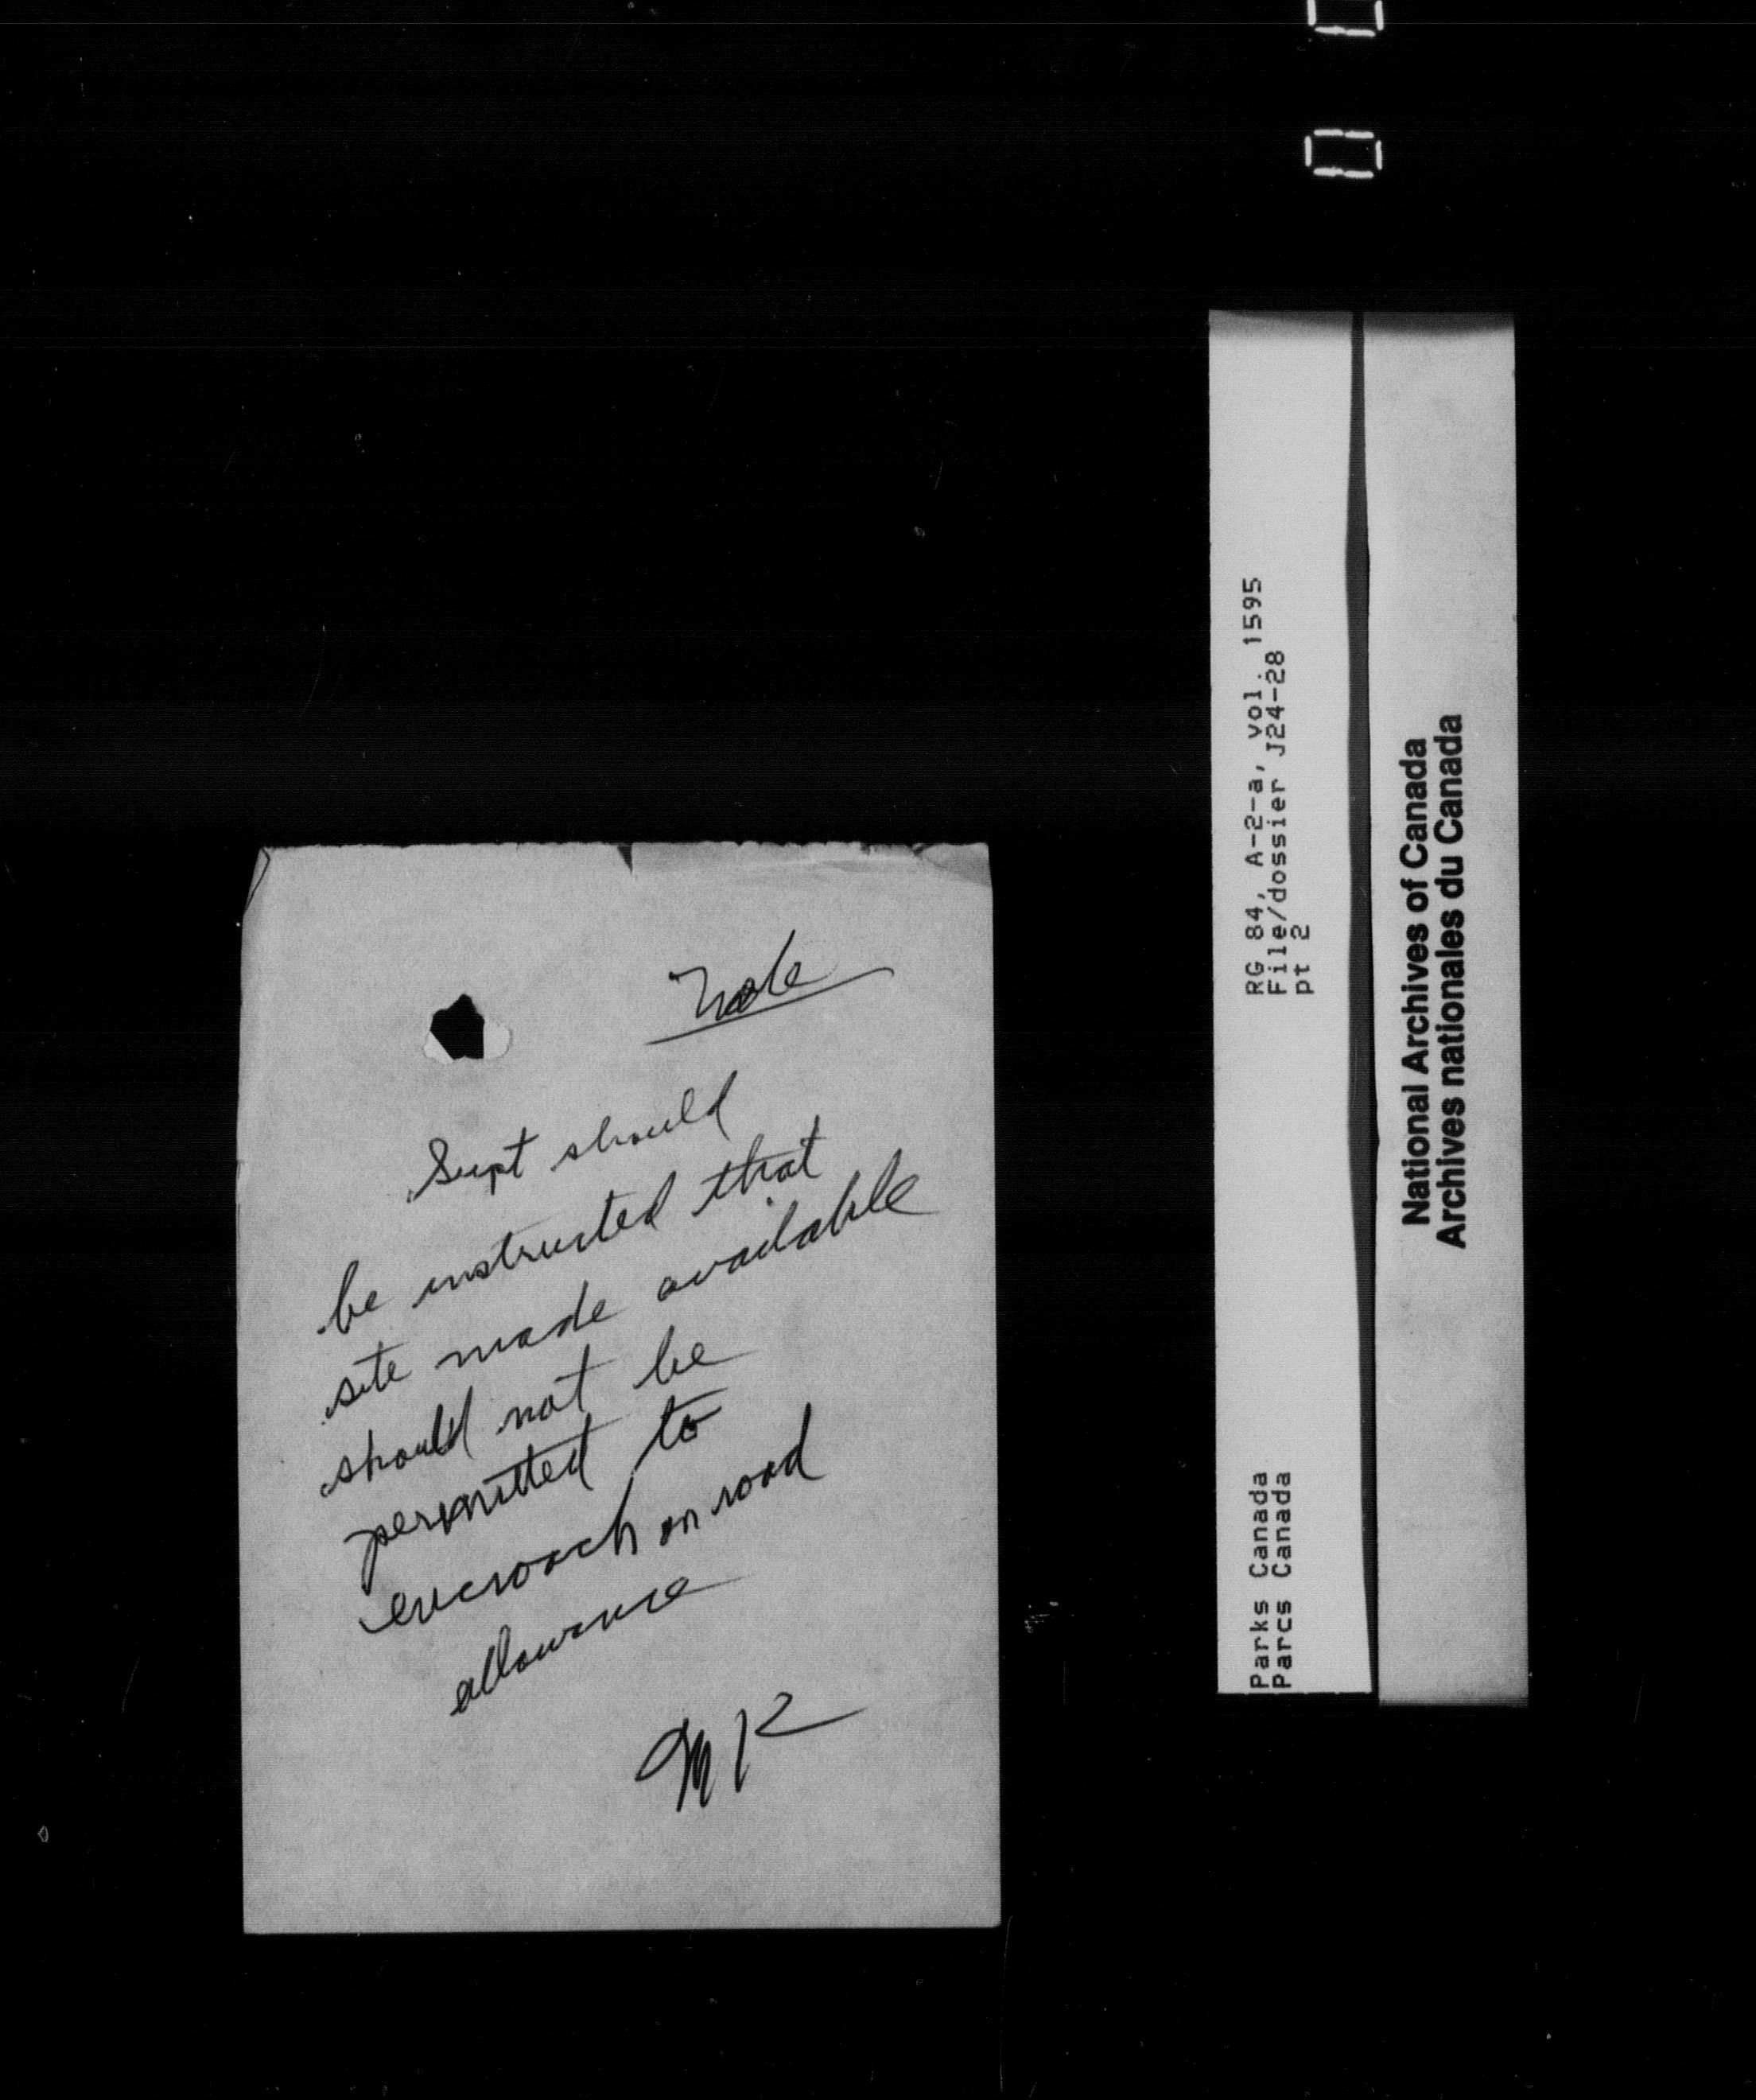 Note
Supt should
be instructed that
site made available
should not be
permitted to
encroach on road
allowance
RG 84, A-2-a, vol. 1595
File/dossier J24-28
pt 2
Parks Canada
Parcs Canada
National Archives of Canada
Archives nationales du Canada